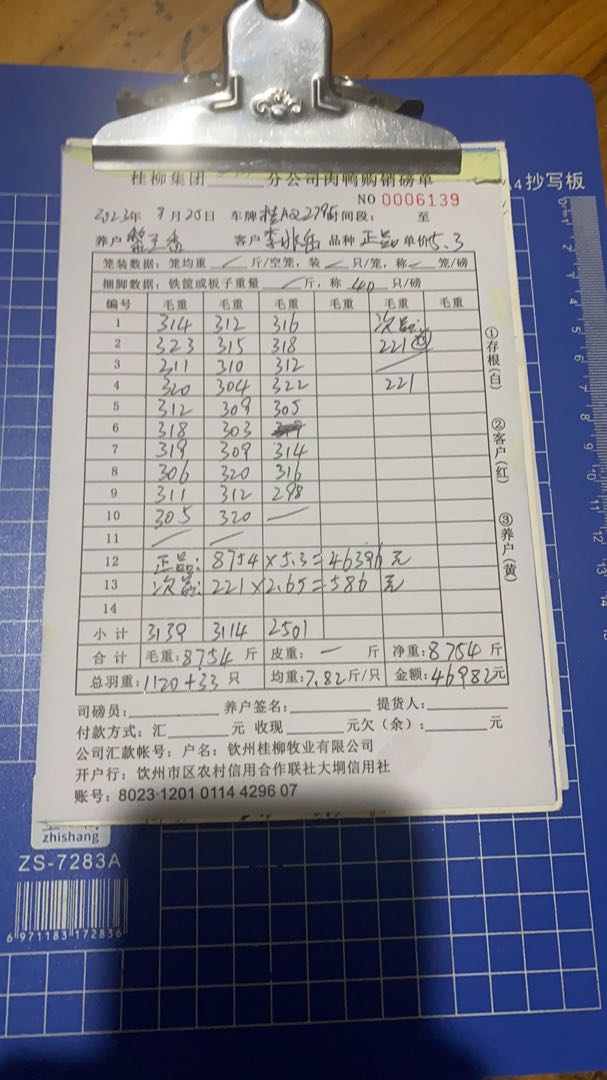 桂柳集团 分公司肉鸭购销磅单
NO 0006139
2023年 9月20日 车牌 桂AQ279 时间段: 至
养户 客户 李 品种 正品 单价 5.3
笼装数据: 笼均重 / 斤/空笼, 装 / 只/笼, 称 / 笼/磅
捆脚数据: 铁筐或板子重量 / 斤, 称 40 只/磅
编号 毛重 毛重 毛重 毛重 毛重 毛重
1 314 312 316 次品:
2 323 315 318 221
3 211 310 312 /
4 320 304 322 221
5 312 309 305
6 318 303
7 319 309 314
8 306 320 316
9 311 312 298
10 305 320 —
11 / /
12 正品: 8754×5.3=46396元
13 次品: 221×2.65=586元
14
小计 3139 3114 2501
合计 毛重: 8754 斤 皮重: — 斤 净重: 8754 斤
总羽重: 1120+33 只 均重: 7.82 斤/只 金额: 46982元
司磅员: 养户签名: 提货人:
付款方式: 汇 元 收现 元欠(余): 元
公司汇款帐号: 户名: 钦州桂柳牧业有限公司
开户行: 钦州市区农村信用合作联社大垌信用社
账号: 8023-1201 0114 4296 07
①存根(白) ②客户(红) ③养户(黄)
A4抄写板
zhishang
ZS-7283A
6 971183 172836